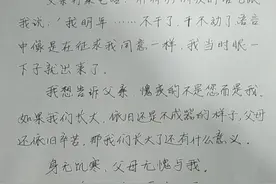 我说："我明年……不干了,干不动了"语音
中像是在征求我同意一样,我当时眼一
下子就出来了。
我想告诉父亲 愧疚的不是您而是我。
如果我们长大,依旧还是不成器的样子,父母
还依旧辛苦,那我们长大了还有什么意义。
身无饥寒,父母无愧与我。